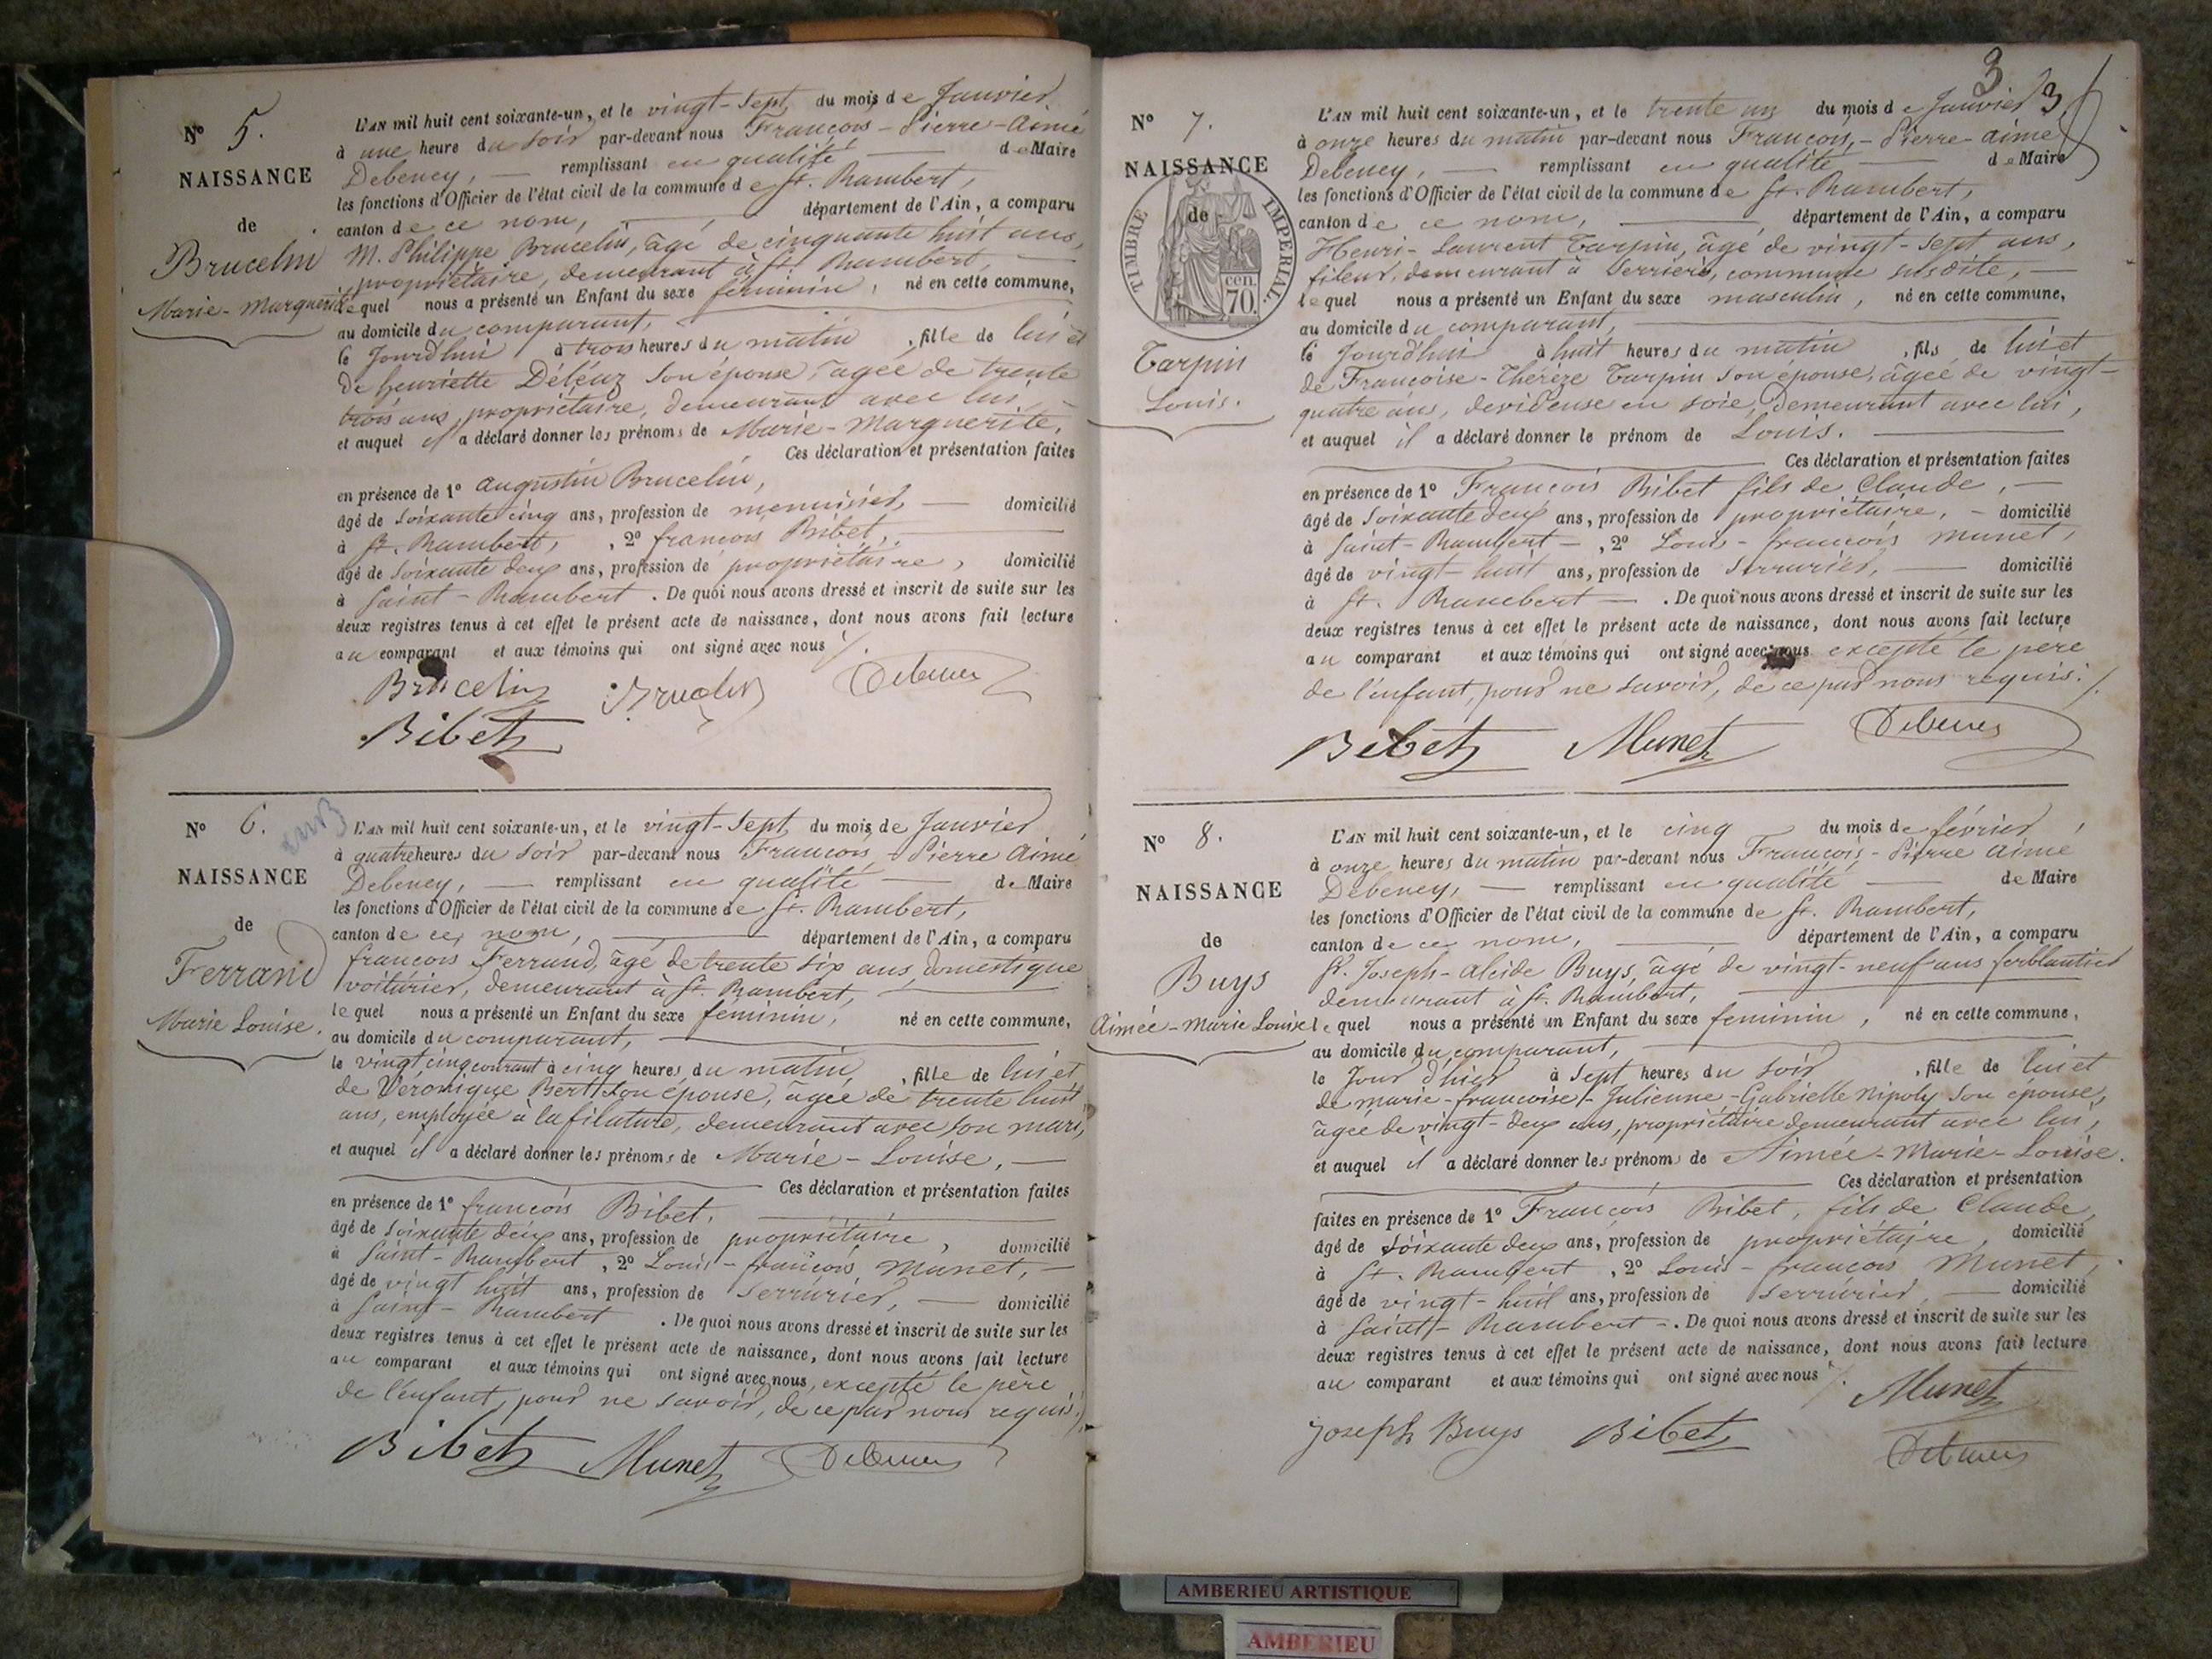 N° 5.
NAISSANCE
de
Brucelin
Marie-Marguerite
L'AN mil huit cent soixante-un, et le vingt-sept du mois de Janvier
à une heure du soir par-devant nous François-Pierre-Aimé
Debeney, remplissant en qualité de Maire
les fonctions d'Officier de l'état civil de la commune de St. Rambert,
canton de ce nom, département de l'Ain, a comparu
M. Philippe Brucelin, âgé de cinquante huit ans,
propriétaire, demeurant à St. Rambert,
lequel nous a présenté un Enfant du sexe féminin, né en cette commune,
au domicile du comparant,
le Jourd'hui à trois heures du matin, fille de lui et
de henriette Déléaz son épouse, âgée de trente
trois ans, propriétaire, demeurant avec lui,
et auquel il a déclaré donner les prénoms de Marie-Marguerite.
Ces déclaration et présentation faites
en présence de 1° Augustin Brucelin,
âgé de soixante cinq ans, profession de menuisier, domicilié
à St. Rambert, , 2° françois Bibet,
âgé de soixante deux ans, profession de propriétaire, domicilié
à Saint-Rambert. De quoi nous avons dressé et inscrit de suite sur les
deux registres tenus à cet effet le présent acte de naissance, dont nous avons fait lecture
au comparant et aux témoins qui ont signé avec nous ./.
Brucelin Brucelin Debeney
Bibet
N° 6.
NAISSANCE
de
Ferrand
Marie Louise.
L'AN mil huit cent soixante-un, et le vingt-sept du mois de Janvier
à quatre heures du soir par-devant nous François-Pierre Aimé
Debeney, remplissant en qualité de Maire
les fonctions d'Officier de l'état civil de la commune de St. Rambert,
canton de ce nom, département de l'Ain, a comparu
françois Ferrand, âgé de trente six ans, domestique
voiturier, demeurant à St. Rambert,
lequel nous a présenté un Enfant du sexe féminin, né en cette commune,
au domicile du comparant,
le vingt cinq courant à cinq heures du matin, fille de lui et
de Véronique Bert son épouse, âgée de trente huit
ans, employée à la filature, demeurant avec son mari,
et auquel il a déclaré donner les prénoms de Marie-Louise,
Ces déclaration et présentation faites
en présence de 1° françois Bibet,
âgé de soixante deux ans, profession de propriétaire, domicilié
à Saint-Rambert, 2° Louis-françois Munet,
âgé de vingt huit ans, profession de Serrurier, domicilié
à Saint-Rambert. De quoi nous avons dressé et inscrit de suite sur les
deux registres tenus à cet effet le présent acte de naissance, dont nous avons fait lecture
au comparant et aux témoins qui ont signé avec nous, excepté le père
de l'enfant, pour ne savoir, de ce par nous requis ./.
Bibet Munet Debeney
3
3
N° 7.
NAISSANCE
de
TIMBRE IMPERIAL.
70. cen.
Tarpin
Louis.
L'AN mil huit cent soixante-un, et le trente un du mois de Janvier
à onze heures du matin par-devant nous François,-Pierre-aimé
Debeney, remplissant en qualité de Maire
les fonctions d'Officier de l'état civil de la commune de St. Rambert,
canton de ce nom, département de l'Ain, a comparu
Henri-Laurent Tarpin, âgé de vingt-sept ans,
fileur, demeurant à Serrière, commune susdite,
lequel nous a présenté un Enfant du sexe masculin, né en cette commune,
au domicile du comparant,
le Jourd'hui à huit heures du matin, fils de lui et
de Françoise-Thérèze Tarpin son épouse, âgée de vingt-
quatre ans, devideuse en soie, demeurant avec lui,
et auquel il a déclaré donner le prénom de Louis.
Ces déclaration et présentation faites
en présence de 1° François Bibet fils de Claude,
âgé de Soixante deux ans, profession de propriétaire, domicilié
à Saint-Rambert, 2° Louis-françois Munet,
âgé de vingt-huit ans, profession de Serrurier, domicilié
à St. Rambert. De quoi nous avons dressé et inscrit de suite sur les
deux registres tenus à cet effet le présent acte de naissance, dont nous avons fait lecture
au comparant et aux témoins qui ont signé avec nous excepté le père
de l'enfant, pour ne savoir, de ce par nous requis. /.
Bibet Munet Debeney
N° 8.
NAISSANCE
de
Buys
Aimée-Marie Louise
L'AN mil huit cent soixante-un, et le cinq du mois de février,
à onze heures du matin par-devant nous François-Pierre Aimé
Debeney, remplissant en qualité de Maire
les fonctions d'Officier de l'état civil de la commune de St. Rambert,
canton de ce nom, département de l'Ain, a comparu
Sr. Joseph-Alcide Buys, âgé de vingt-neuf ans ferblantier
demeurant à St. Rambert,
lequel nous a présenté un Enfant du sexe feminin, né en cette commune,
au domicile du comparant,
le Jour d'hier à sept heures du soir, fille de lui et
de marie-françoise-Julienne-Gabrielle Nipoly son épouse,
âgée de vingt-deux ans, propriétaire demeurant avec lui,
et auquel il a déclaré donner les prénoms de Aimée-Marie-Louise.
Ces déclaration et présentation
faites en présence de 1° François Bibet, fils de Claude,
âgé de soixante deux ans, profession de propriétaire, domicilié
à St. Rambert, 2° Louis-françois Munet,
âgé de vingt-huit ans, profession de serrurier, domicilié
à Saint-Rambert. De quoi nous avons dressé et inscrit de suite sur les
deux registres tenus à cet effet le présent acte de naissance, dont nous avons fait lecture
au comparant et aux témoins qui ont signé avec nous ./.
Munet
Joseph Buys Bibet
Debeney
AMBERIEU ARTISTIQUE
AMBERIEU